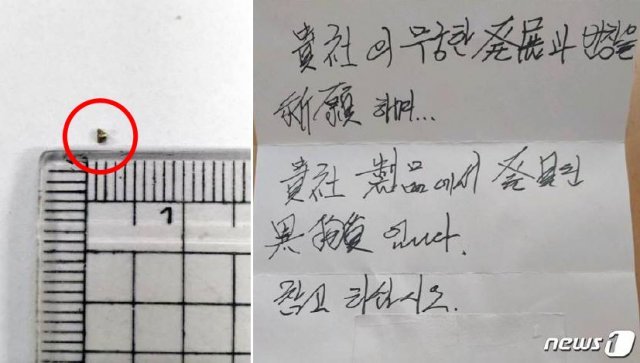 1
貴社의 무궁한 発展과 번창을
祈願하며...
貴社 製品에서 発見된
異物質입니다.
참고 하십시오.
news1